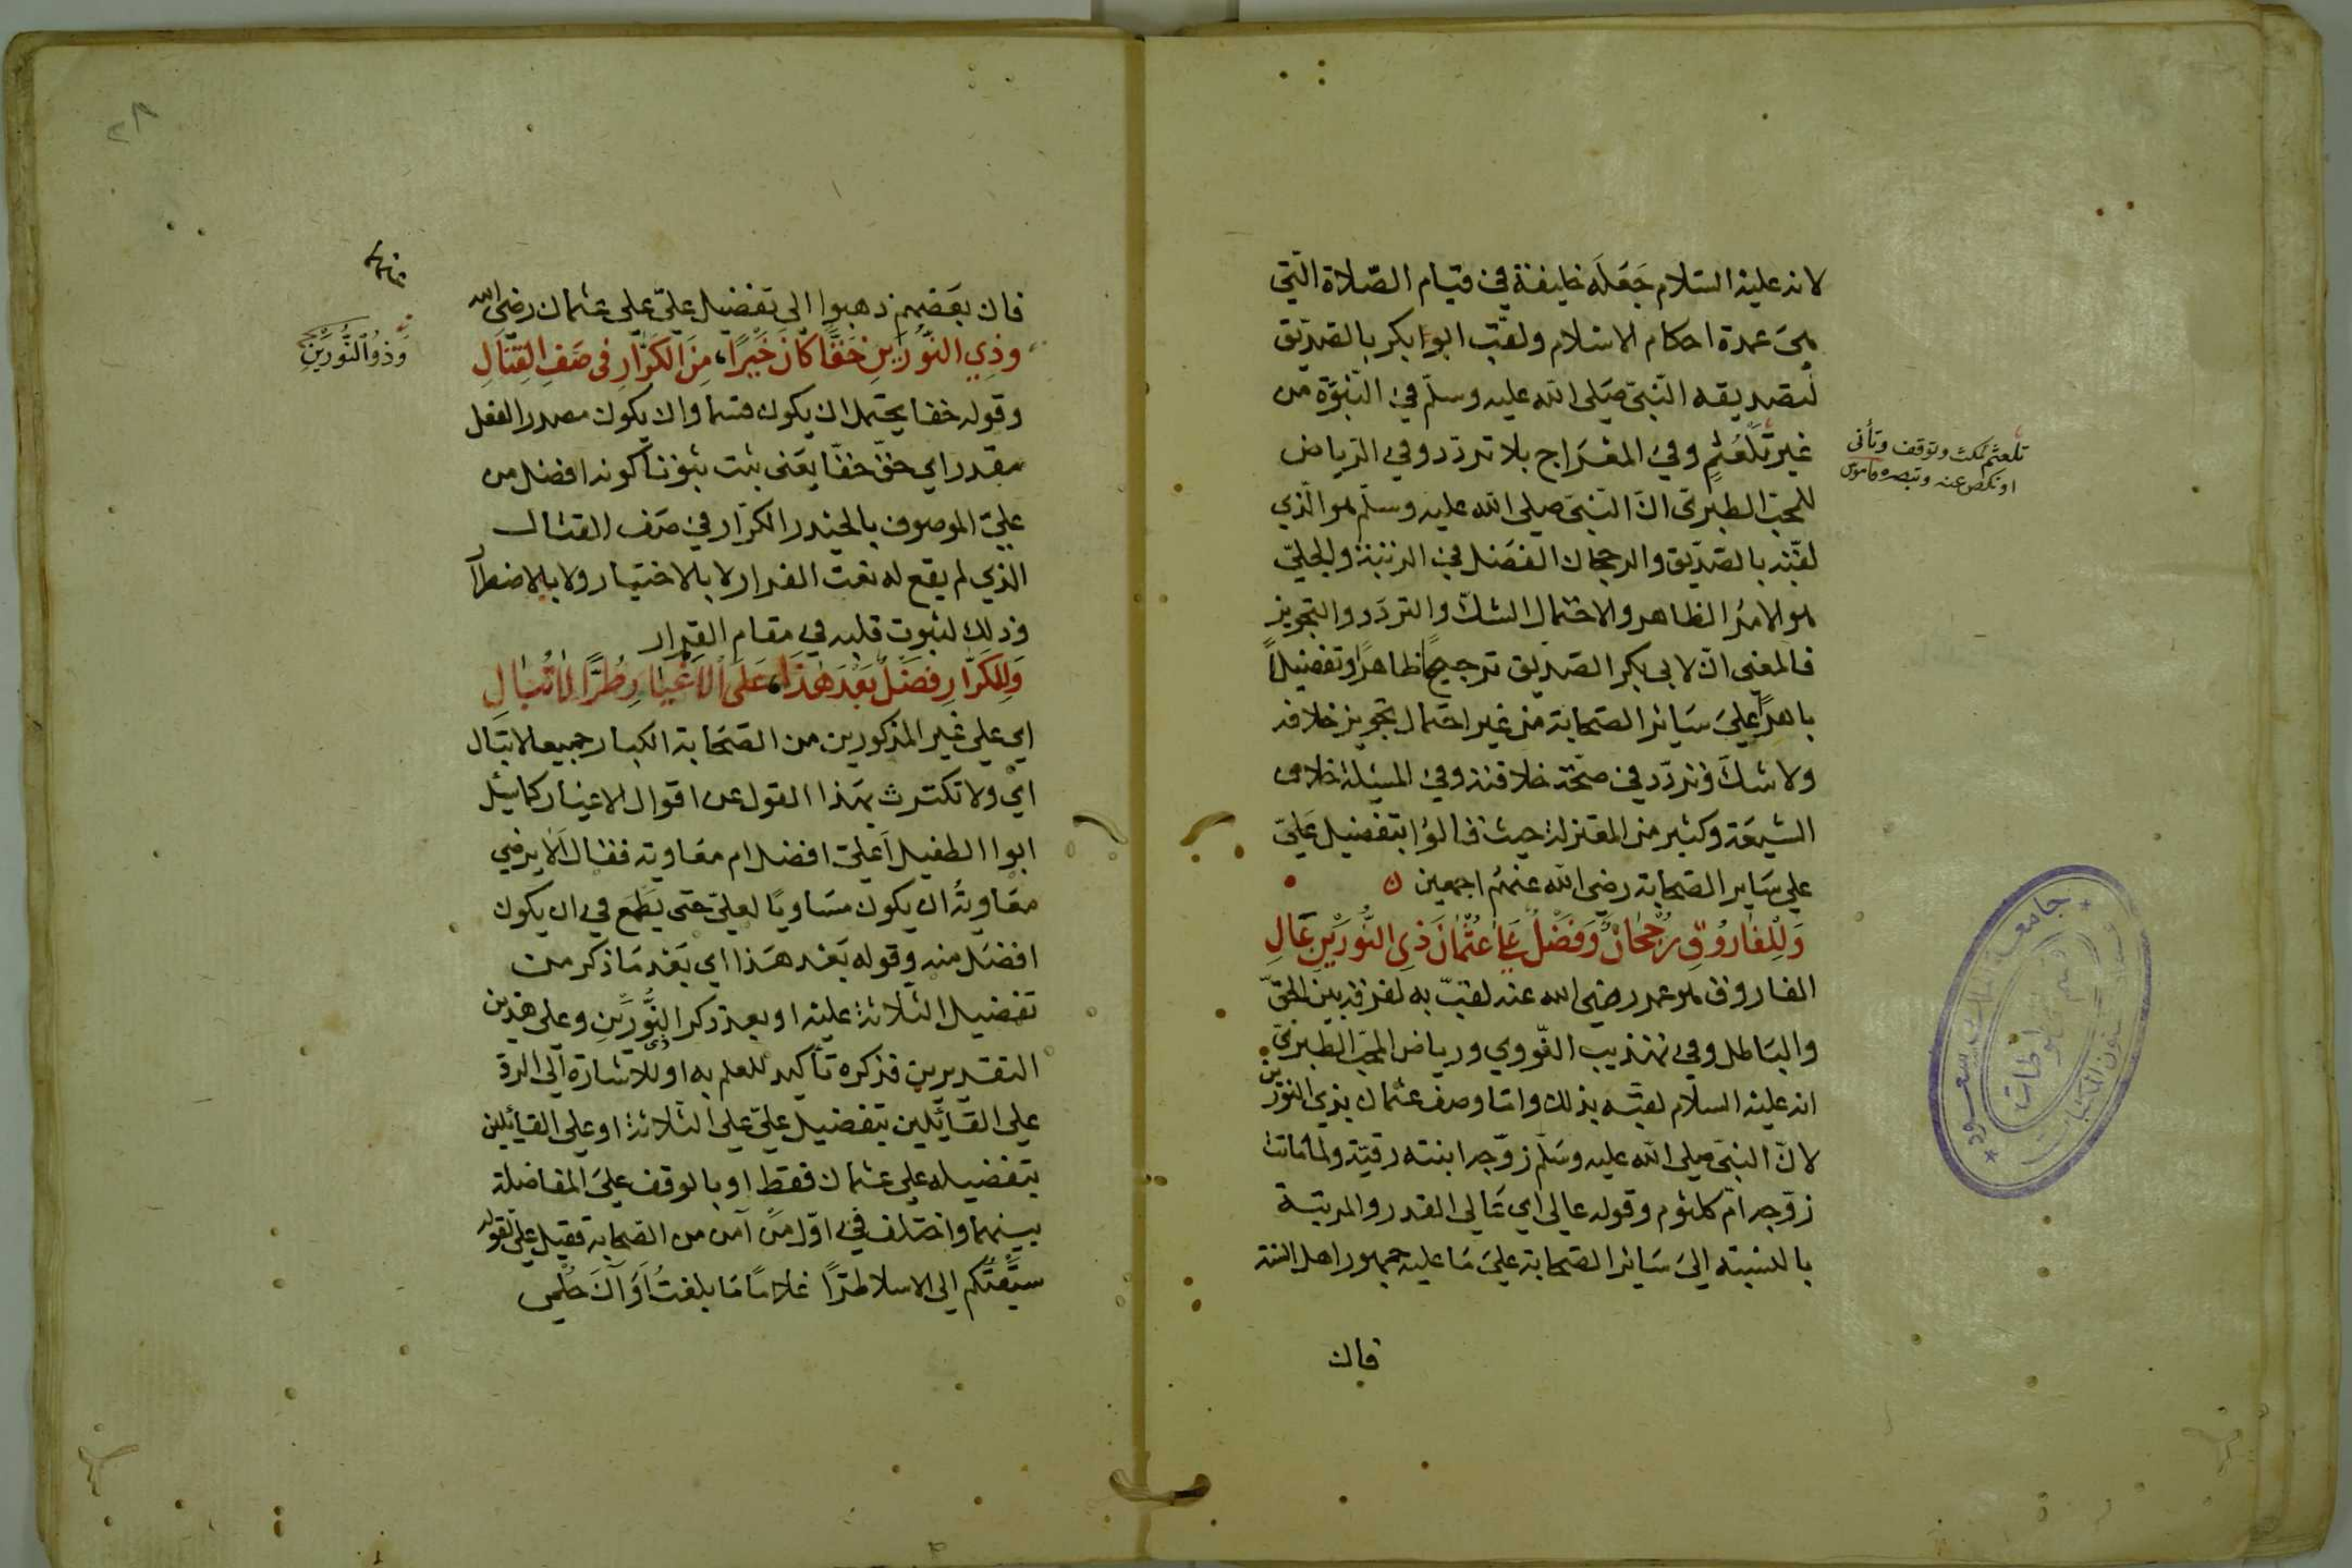 لانه عليه السلام جَعَلَه خليفة في قيام الصّلاة الّتي
هي عمدة احكام الاسلام ولقب ابوا بكر بالصدّيق
لتصديقه النّبيّ صَلى الله عليه وسلّم في النّبوّة من
غير تَلَعْثُمٍ وفي المعْرَاج بلا تردّد وفي الرياض
للمحبّ الطبري انّ النّبيّ صلى الله عليه وسلّم هو الّذي
لقّبه بالصّدّيق والرجحان الفضل في الرتبة والجليّ
هو الامرُ الظاهر والاحتمال الشكّ والتردّد والتجويز
فالمعنى انّ لابي بكر الصّدّيق ترجيحًا ظاهرًا وتفضيلاً
باهرًا على سَائر الصّحابة من غير احتمال تجويز خلافه
ولا شكّ وتردّد في صحّة خلافته وفي المسئلة خلاف
الشيعَة وكثير من المعتزلة حيث قالوُا بتفضيل عَليّ
علي سَاير الصّحابة رضي الله عنهُم اجمعين
وَلِلْفَارُوقِ رُجْحَانٌ وَفَضْلٌ عَلَى عُثْمَانَ ذِي النُّورَيْنِ عَالِ
الفاروق هو عمر رضي الله عنه لقبّ به لفرقه بين الحقّ
والبَاطل وفي تهذيب النّووي ورياض المحبّ الطبريّ
انه عليه السلام لقبّه بذلك وانما وصف عثمان بذي النورين
لانّ النبيّ صلى الله عليه وسَلّم زوّجه ابنته رقيّة ولما ماتت
زوّجه امّ كلثوم وقوله عالي اي عَالي القدر والمرتبة
بالنسبة الىَ سَائر الصّحابة علىَ مَا عليه جمهور اهل السنة
فان
تلعثم تمكث وتوقف وتأنى
او نكص عنه وتبصره قاموس
فان بعَضهم ذهبوا الى تفضيل عليّ على عثمان رضي الله
وذِي النُّورَيْنِ حَقًّا كَانَ خَيْرًا، مِنَ الكَرَّارِ فِي صَفِّ القِتَالِ
وقوله حقا يحتمل ان يكون قسما وان يكون مصدر الفعل
مقدر اي حقّ حقّا يعَنى ثبت ثبوتا كونه افضل من
عليّ الموصوف بالحيدر الكرّار في صَف القتال
الذي لم يقع له نعت الفرار لا بالاختيار ولا بالاضطرار
وذلك لثبوت قلبه في مقام القرار
وَلِلكَرَّارِ فَضْلٌ بَعْدَ هَذَا، عَلَى الأَغْيَارِ طُرًّا لاَ تُبَالِ
اي على غير المذكورين من الصّحَابة الكبار جميعا لا تبَال
ايْ ولا تكترث بهَذا القول عن اقوال الاغيار كما سُئل
ابوا الطفيل أعليّ افضل ام معَاوية فقال ألا يرضي
معَاويةُ ان يكون مسَاويًا لعليّ حتى يَطمع في ان يكون
افضَل منه وقوله بَعْد هَذا اي بَعْد مَا ذكر من
تفضيل الثلاثة عليه او بعد ذكر ذى النُّورَيْنِ وعلى هذين
التقديرين فذكره تأكيد للعلم به او للاشارة الى الردّ
على القائلين بتفضيل عليّ على الثلاثة او على القائلين
بتفضيله على عثمان فقط او بالوقف علىَ المفاضلة
بينهما واختلف في اوّل مَن آمن من الصحابة فقيل عليّ لقوله
سَبَقْتُكم الي الاسلا طُرّا غلامًا مَا بلغتُ أوَآنَ حُلمي
وَذوُ النُّورَيْنِ
٢٨
جامعة الملك سعود
قسم المخطوطات